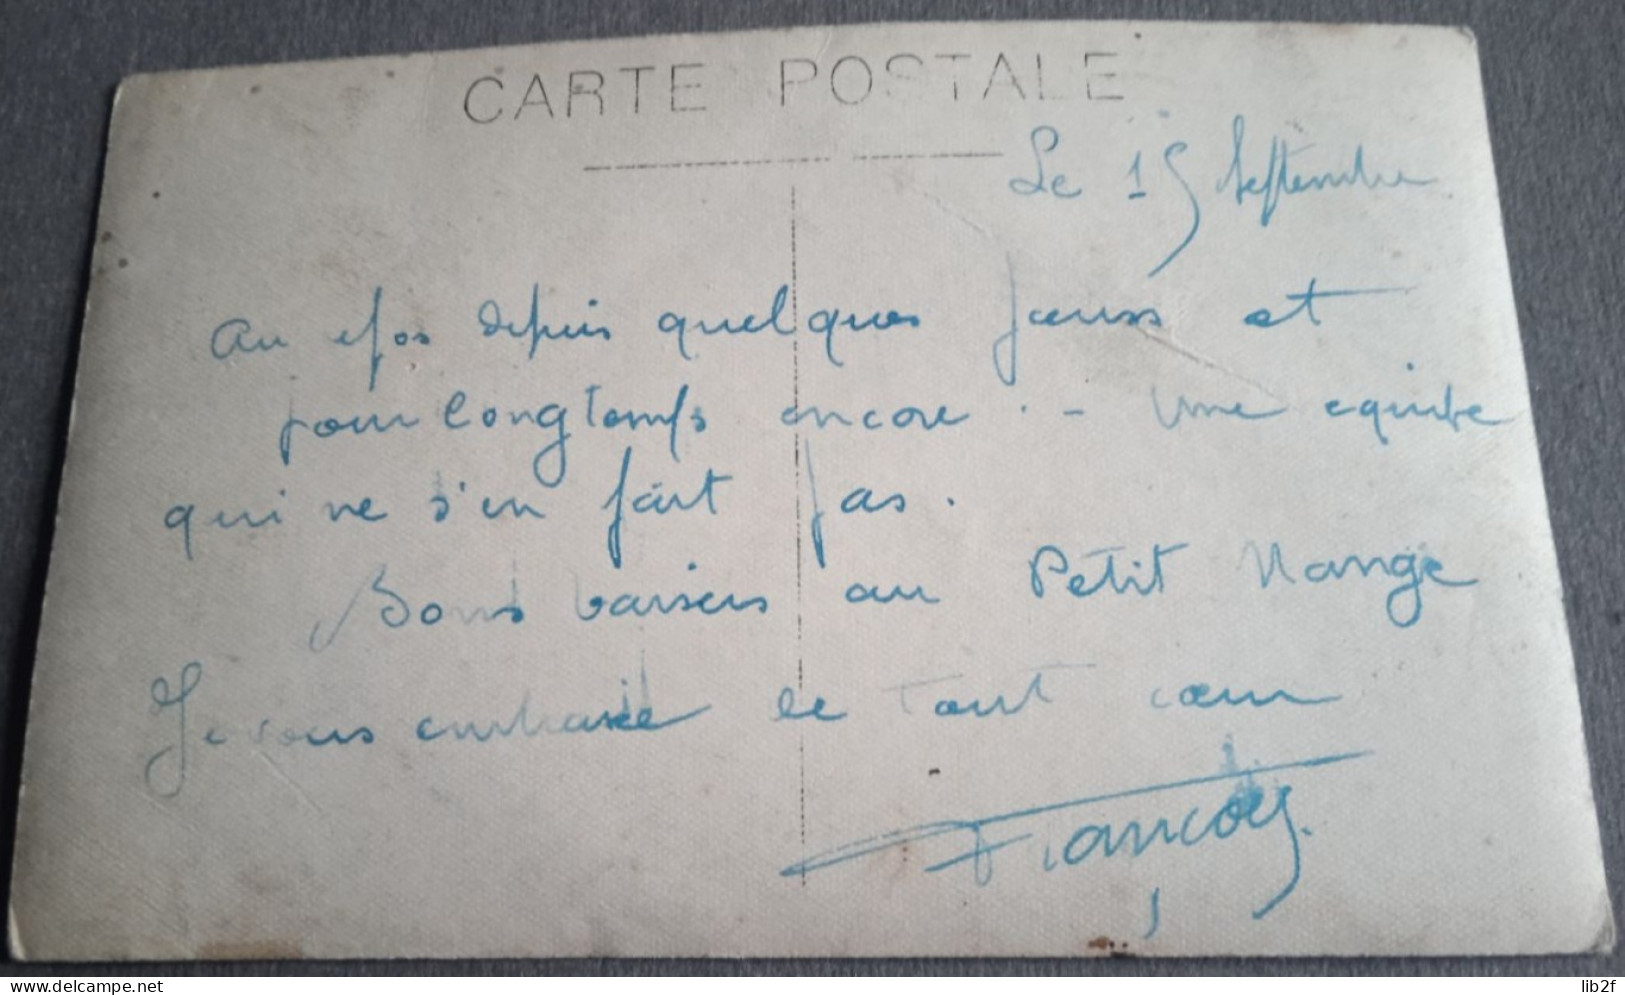 CARTE POSTALE
Le 15 Septembre
Au repos depuis quelques jours et
pour longtemps encore . - Une equipe
qui ne s'en fait pas.
Bons baisers au Petit Mange
Je vous embrasse de tout coeur
François.
lib2f